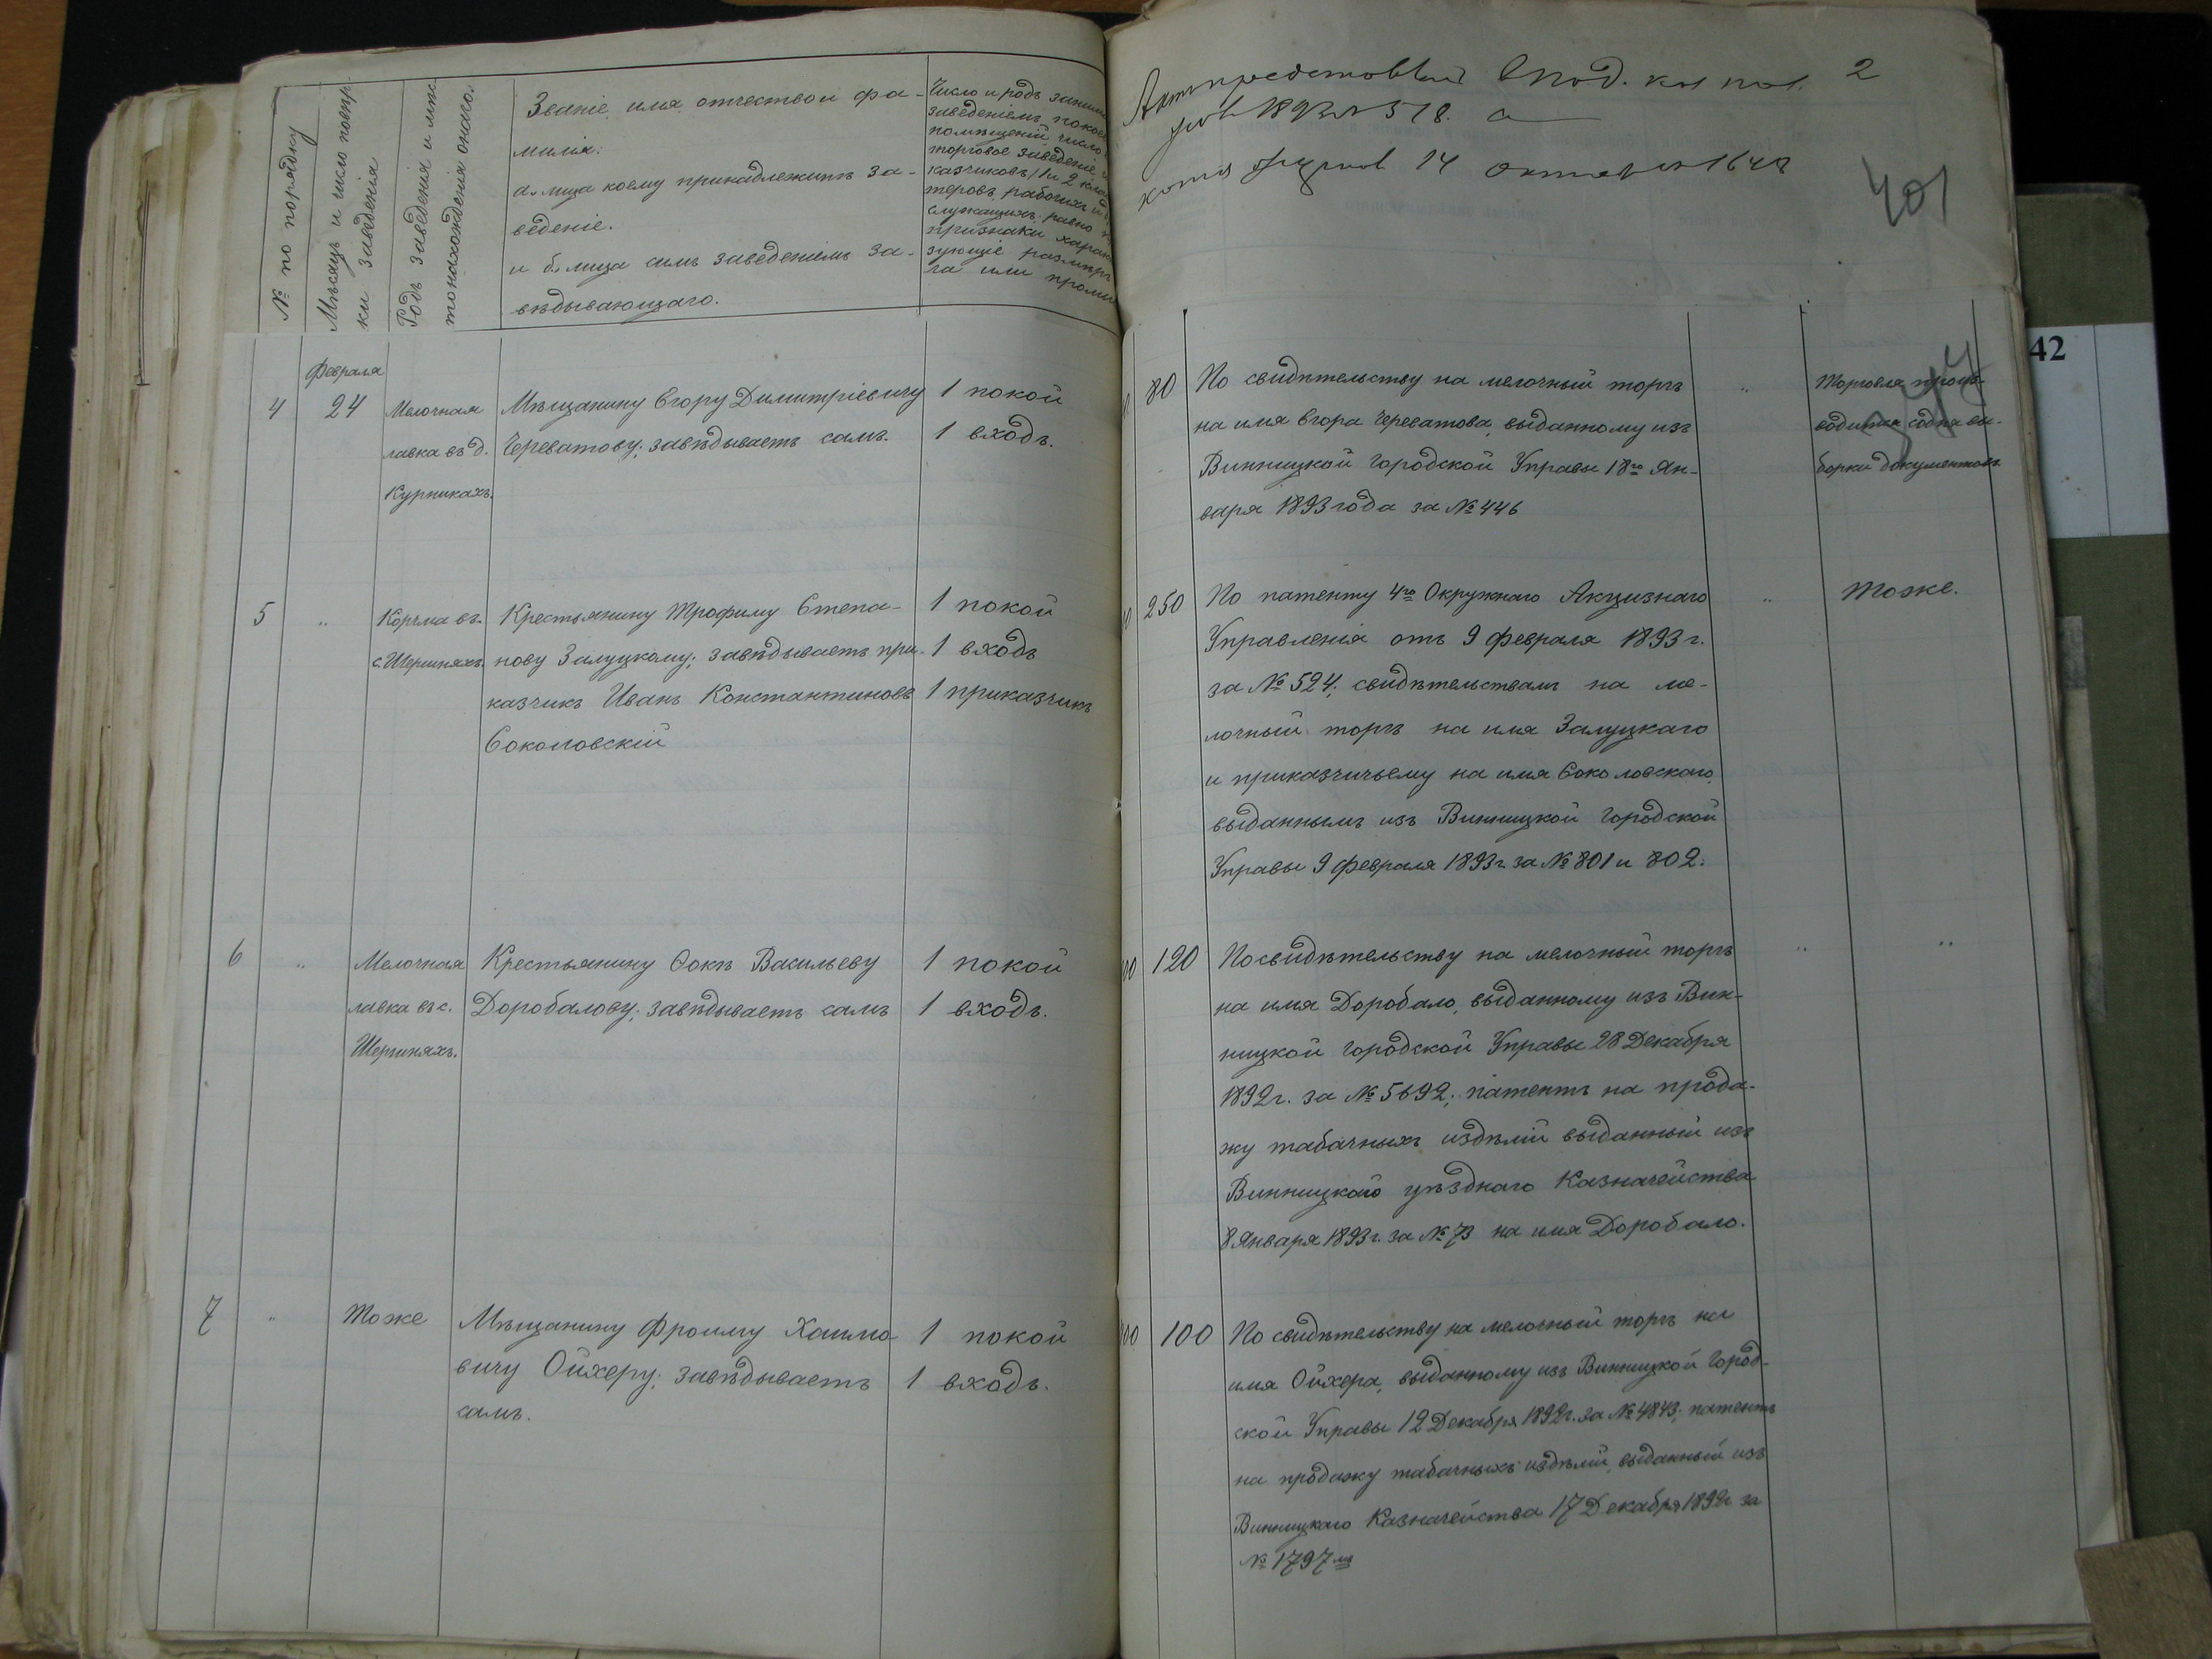 № по порядку
Мѣсяцъ и число повѣр
ки заведенія
Родъ заведенія и мѣс
тонахожденія онаго.
Званіе, имя, отчество и фа-
милія:
а. лица коему принадлежитъ за-
веденіе.
и б. лица симъ заведеніемъ за-
вѣдывающаго.
Число и родъ заним
заведеніемъ покое
помѣщеній число
торговое заведеніе,
казчиковъ, 1 и 2 кла
теровъ, рабочихъ и д
служащихъ, равно
признаки харак
зующіе размѣръ
га или промы
4
Февраля
24
Мелочная
лавка въ д.
Курникахъ.
Мѣщанину Егору Димитріевичу
Череватову; завѣдываетъ самъ.
1 покой
1 входъ.
5
"
Корчма въ
с. Шершняхъ.
Крестьянину Трофиму Степа-
нову Залуцкому; завѣдываетъ при-
казчикъ Иванъ Константиновъ
Соколовскій
1 покой
1 входъ
1 приказчикъ
6
"
Мелочная
лавка въ с.
Шершняхъ.
Крестьянину Фокѣ Васильеву
Доробалову; завѣдываетъ самъ
1 покой
1 входъ.
7
"
Тоже
Мѣщанину Фроиму Хаимо-
вичу Ойхеру; завѣдываетъ
самъ.
1 покой
1 входъ.
2
401
14
80
По свидѣтельству на мелочный торгъ
на имя Егора Череватова, выданному изъ
Винницкой Городской Управы 18го Ян-
варя 1893 года за № 446
"
Торговля произ-
водится безъ вы-
борки документовъ
250
По патенту 4го Окружнаго Акцизнаго
Управленія отъ 9 февраля 1893 г.
за № 524; свидѣтельствамъ на ме-
лочный торгъ на имя Залуцкаго
и приказчичьему на имя Соколовскаго,
выданнымъ изъ Винницкой Городской
Управы 9 февраля 1893 г. за № 801 и 802.
"
Тоже.
00
120
По свидѣтельству на мелочный торгъ
на имя Доробало, выданному изъ Вин-
ницкой Городской Управы 28 Декабря
1892 г. за № 5692; патентъ на прода-
жу табачныхъ издѣлій выданный изъ
Винницкаго уѣзднаго Казначейства
8 Января 1893 г. за № 73 на имя Доробало.
"
"
00
100
По свидѣтельству на мелочный торгъ на
имя Ойхера, выданному изъ Винницкой Город-
ской Управы 12 Декабря 1892 г. за № 4843; патентъ
на продажу табачныхъ издѣлій, выданный изъ
Винницкаго Казначейства 17 Декабря 1892 г. за
№ 1797мъ
42